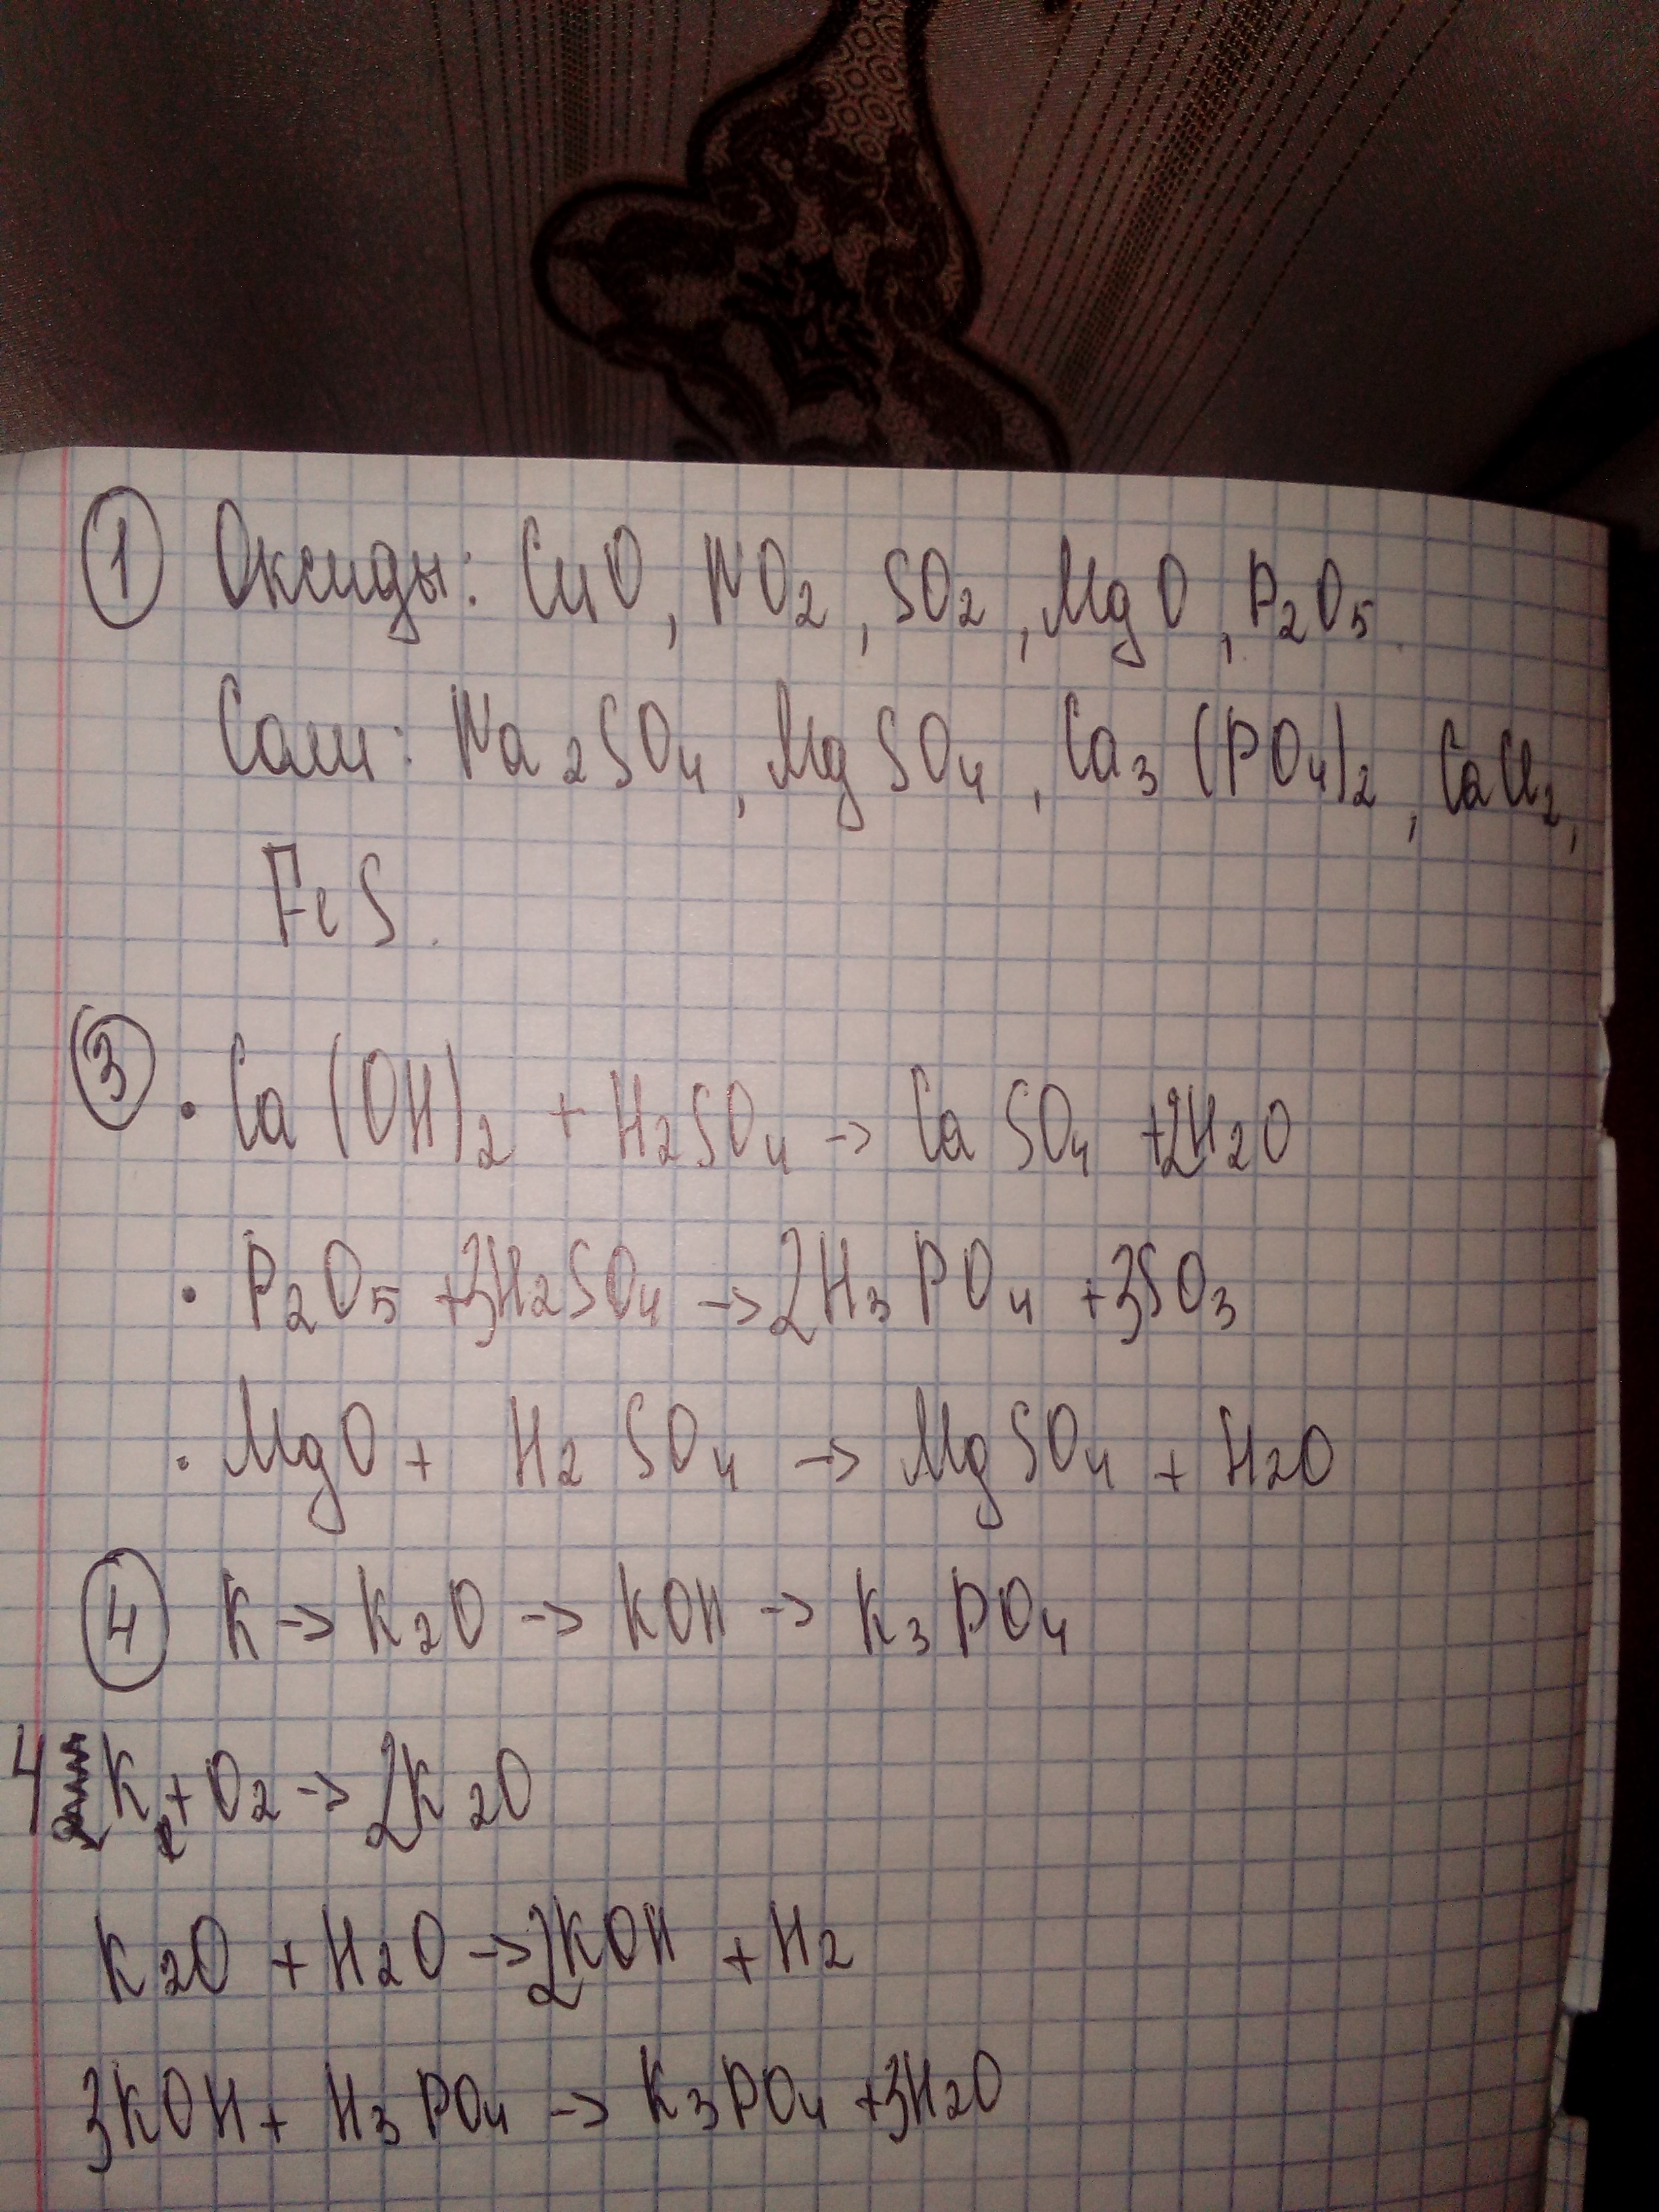 ① Оксиды: CuO, NO₂, SO₂, MgO, P₂O₅.
Соли: Na₂SO₄, MgSO₄, Ca₃(PO₄)₂, CaCl₂,
FeS.
③ • Ca(OH)₂ + H₂SO₄ → CaSO₄ + 2H₂O
• P₂O₅ + 3H₂SO₄ → 2H₃PO₄ + 3SO₃
• MgO + H₂SO₄ → MgSO₄ + H₂O
④ K → K₂O → KOH → K₃PO₄
4K + O₂ → 2K₂O
K₂O + H₂O → 2KOH + H₂
3KOH + H₃PO₄ → K₃PO₄ + 3H₂O